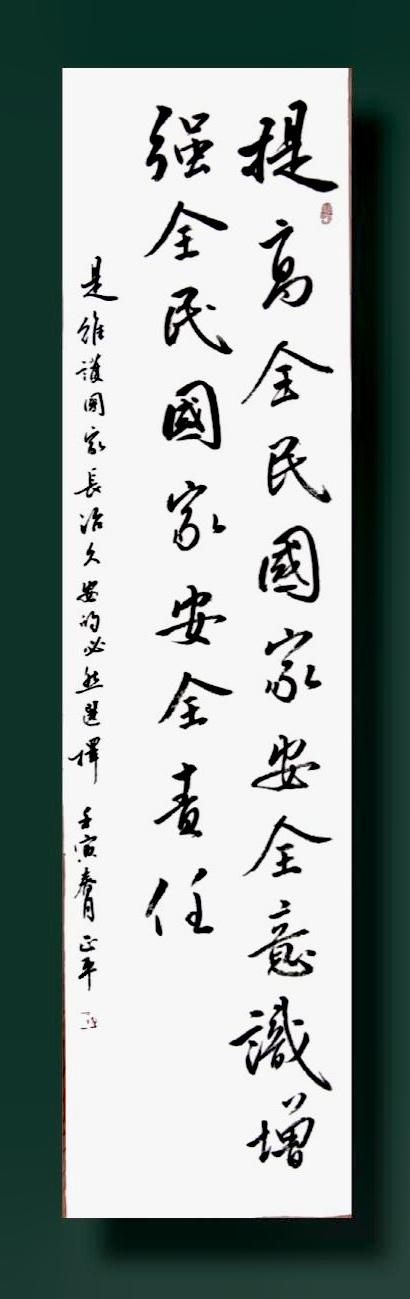 提高全民國家安全意識增
强全民國家安全責任
是維護國家長治久安的必然選擇 壬寅春月 正平